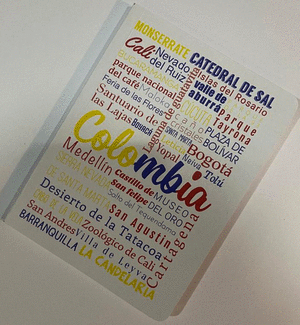 MONSERRATE
CATEDRAL DE SAL
Cali
Nevado del Ruiz
Islas del Rosario
BUCARAMANGA
valle de aburrá
parque nacional del café
Maloka
parque Tayrona
Feria de las Flores
caño cristales
PLAZA DE BOLÍVAR
Santuario de las Lajas
laguna de guatavita
SANTA MARTA
Bogotá
Yopal
Neiva
Tolú
Colombia
Medellín
Castillo de san felipe
MUSEO DEL ORO
Cartagena
Salto del tequendama
Desierto de la Tatacoa
San Agustín
San Andres
Zoológico de Cali
Villa de Leyva
BARRANQUILLA
LA CANDELARIA